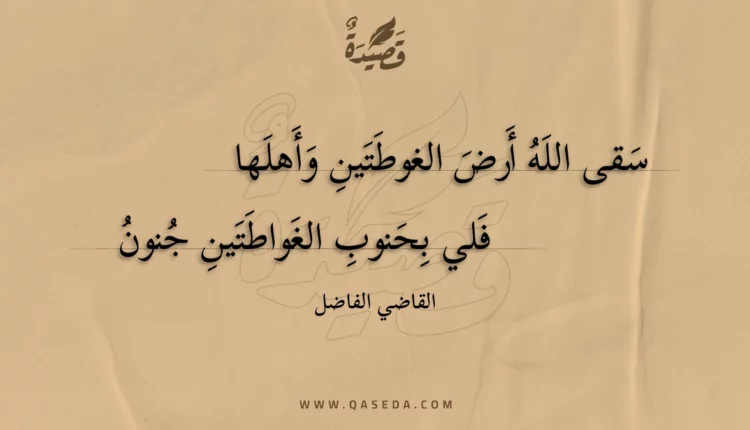 قَصِيدَةٌ
سَقى اللَهُ أَرضَ الغوطَتَينِ وَأَهلَها
فَلي بِحَنوبِ الغَواطَتَينِ جُنونُ
القاضي الفاضل
WWW.QASEDA.COM